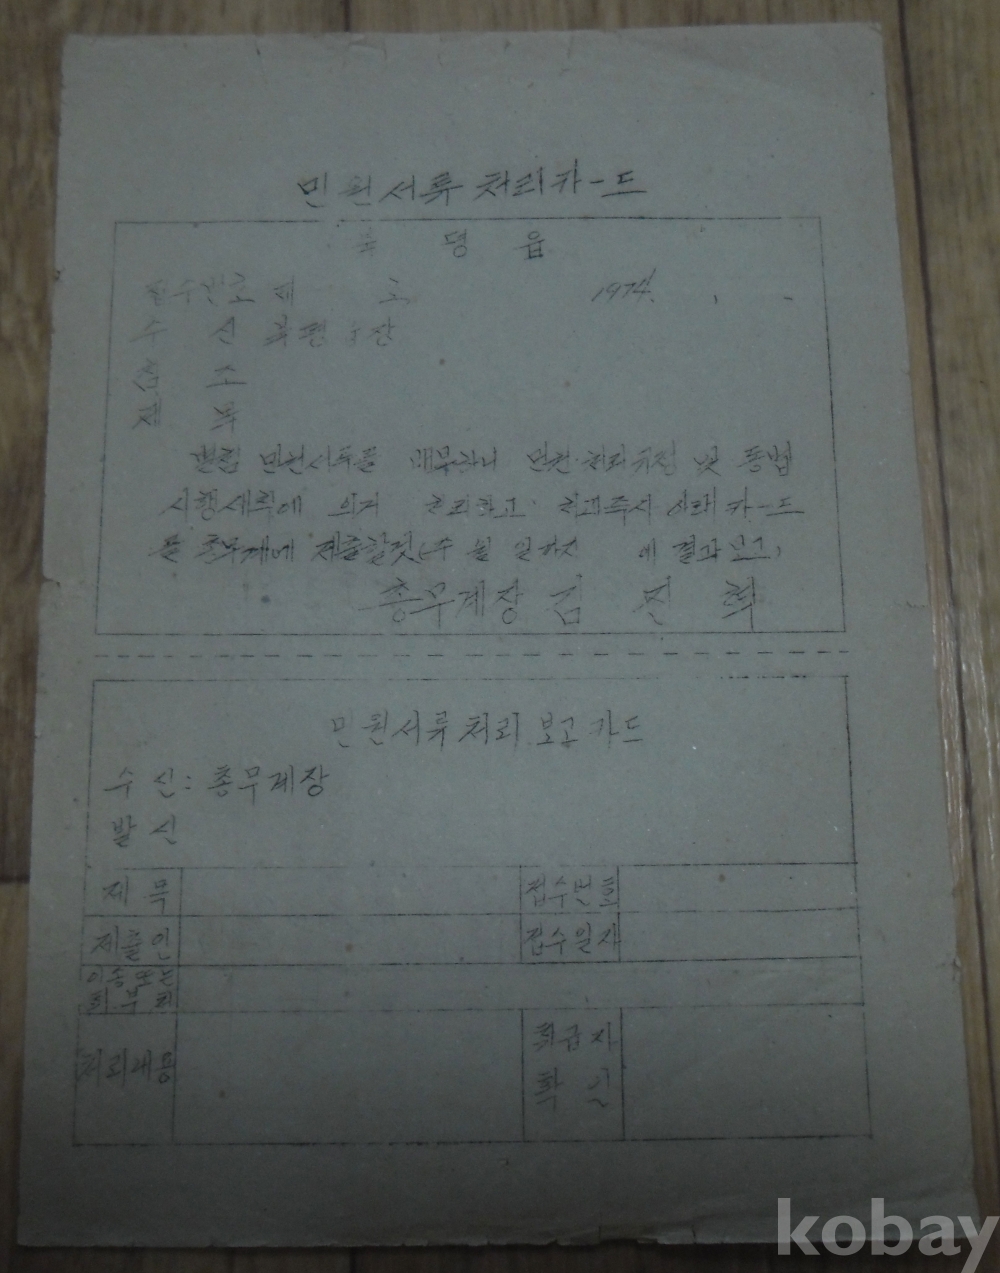 민원서류 처리카-드
읍
접수번호 제 호 1974. . .
수 신 부면장
참 조
제 목
별첨 민원서류를 배부하니 민원처리규정 및 동법
시행세칙에 의거 처리하고 처리즉시 아래 카-드
를 총무계에 제출할것 ( 월 일까지 에 결과보고)
총무계장 김
민원서류 처리 보고 카드
수 신 : 총무계장
발 신
제 목 접수번호
제출인 접수일자
이송또는
회 부 처
처리내용 취급자
확 인
kobay